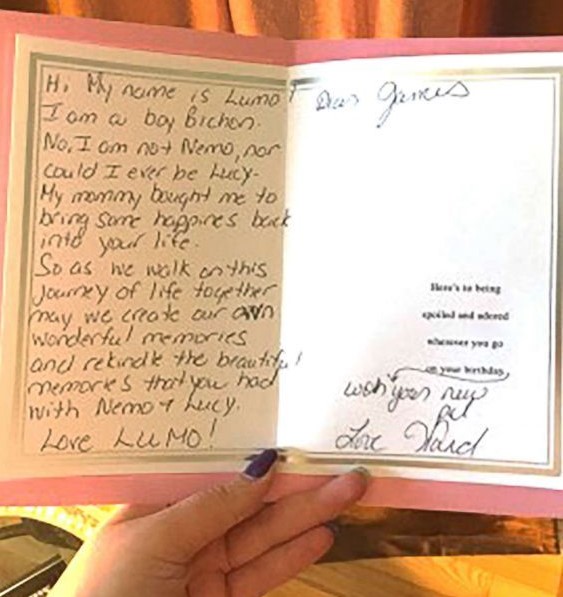 Hi, My name is Lumo!
I am a boy Bichon.
No, I am not Nemo, nor
could I ever be Lucy.
My mommy bought me to
bring some happines back
into your life.
So as we walk on this
journey of life together
may we create our own
wonderful memories
and rekindle the beautiful
memories that you had
with Nemo & Lucy.
Love LUMO!
Dear James
Here's to being
spoiled and adored
wherever you go
on your birthday.
with your new
pal
Love Ward